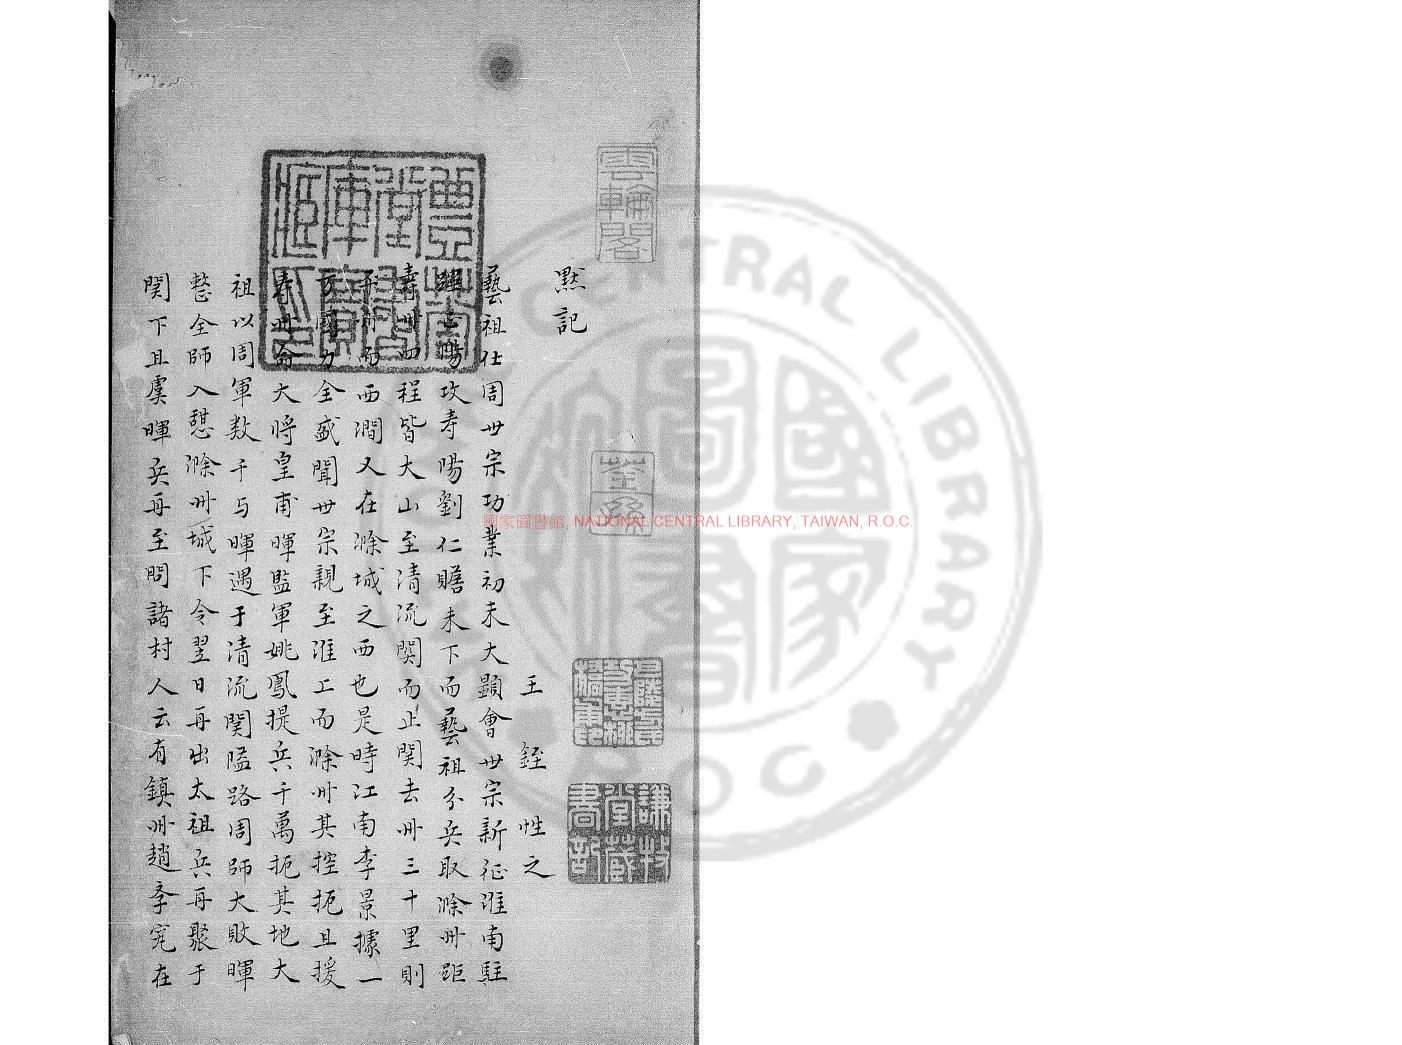 默記
王銍性之
藝祖仕周世宗功業初未大顯會世宗新征淮南駐
蹕正陽攻壽陽劉仁贍未下而藝祖分兵取滁州距
壽州四程皆大山至清流關而止關去州三十里則
平川而西澗又在滁城之西也是時江南李景據一
方國力全盛聞世宗親至淮上而滁州其控扼且援
壽州命大將皇甫暉監軍姚鳳提兵十萬扼其地大
祖以周軍数千与暉遇于清流関隘路周師大敗暉
整全師入憇滁州城下令翌日再出太祖兵再聚于
関下且虞暉兵再至問諸村人云有鎮州趙學究在
雲輪閣
荃孫
謙牧堂藏書記
國家圖書館, NATIONAL CENTRAL LIBRARY, TAIWAN, R.O.C.
NATIONAL CENTRAL LIBRARY
R.O.C.
國家圖書